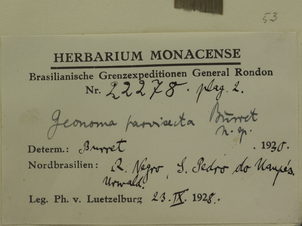 53
HERBARIUM MONACENSE
Brasilianische Grenzexpeditionen General Rondon
Nr. 22278. plag. 2.
Geonoma parvisecta Burret
n. sp.
Determ.: Burret . 1930.
Nordbrasilien: R. Negro, S. Pedro do Uaupés
Urwald.
Leg. Ph. v. Luetzelburg 23. IX. 1928.